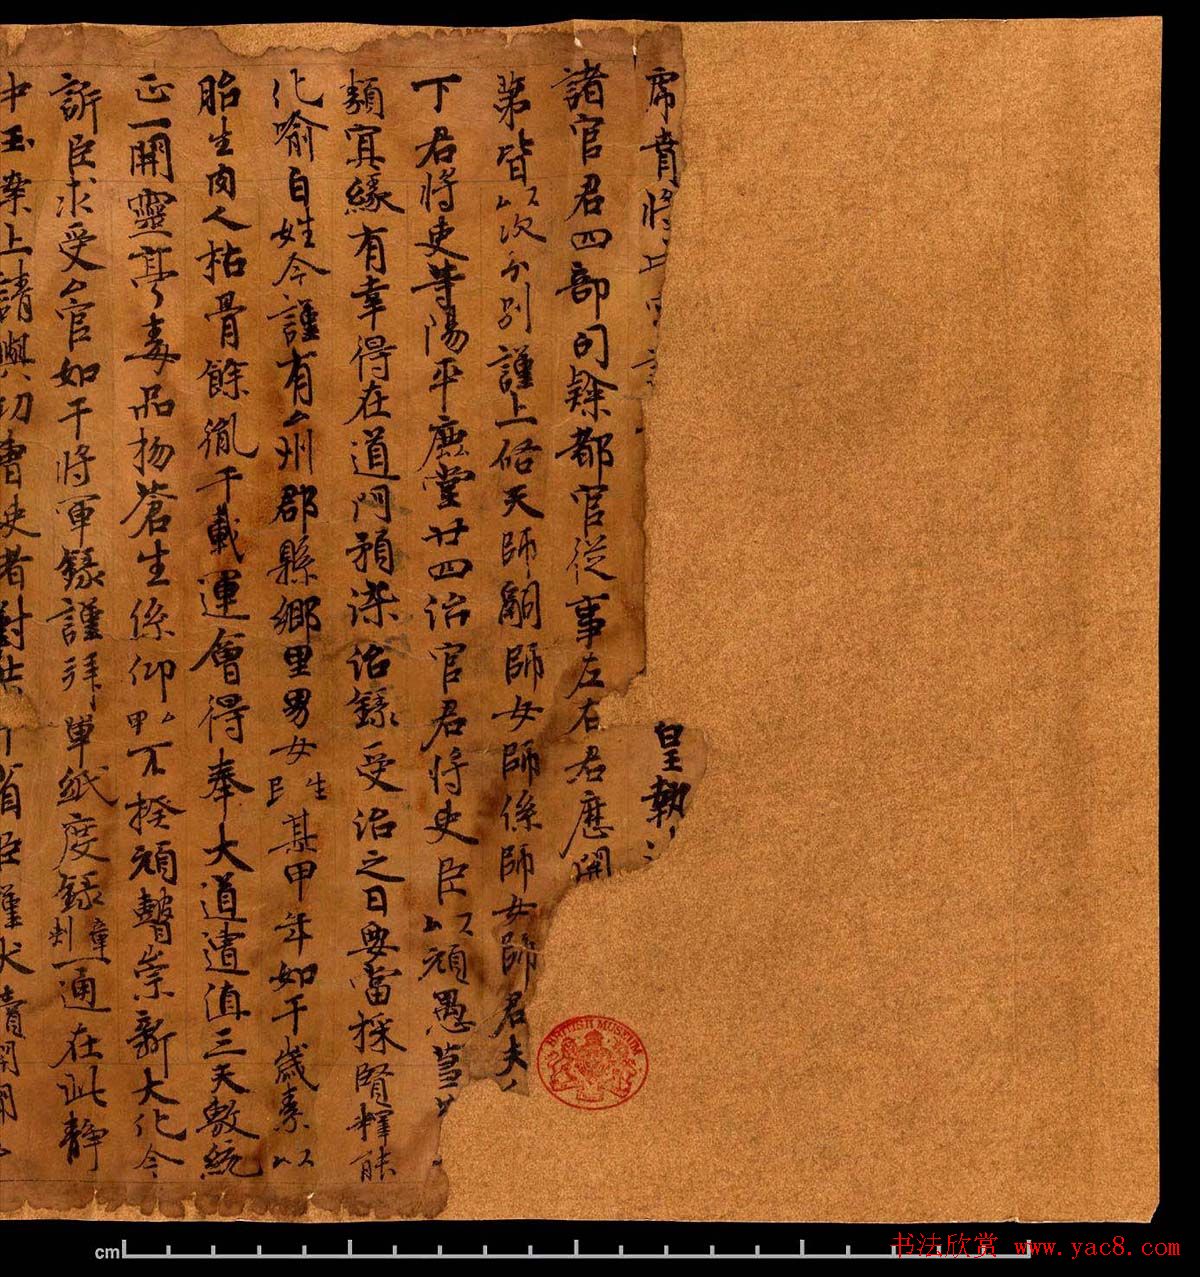 席賁將
皇執
諸官君四部司隸都官從事左右君應開
第皆以次分別謹上啓天師嗣師女師係師女師君夫
丁君將吏等陽平鹿堂廿四治官君將吏臣以頑愚
類寅緣有幸得在道門預染治籙受治之日要當採賢擇能
化喻百姓今謹有厶州郡縣鄉里男女生民某甲年如干歲素以
胎生肉人枯骨餘胤千載運會得奉大道遭值三天敷統
正一開靈亭々毒品物蒼生係仰甲厶不揆頑瞽崇新大化今
訴臣求受厶官如干將軍籙謹拜單紙度籙童刺一通在此靜
中玉案上請與功曹史者對共
BRITISH MUSEUM
cm
书法欣赏 www.yac8.com